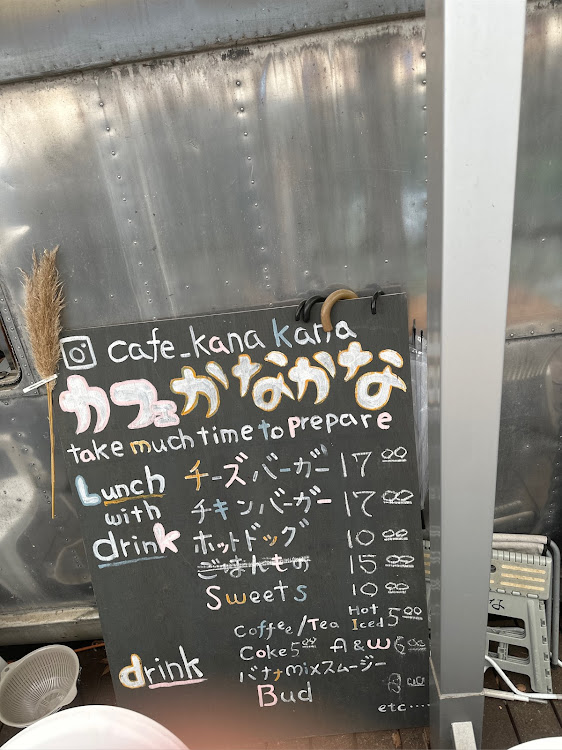 cafe_kana kana
カフェかなかな
take much time to prepare
Lunch with drink
チーズバーガー 1700
チキンバーガー 1700
ホットドッグ 1000
ごはんもの 1500
Sweets 1000
Coffee/Tea Hot Iced 500
Coke 500 A&W 600
バナナmixスムージー 800
drink
Bud
etc....
な